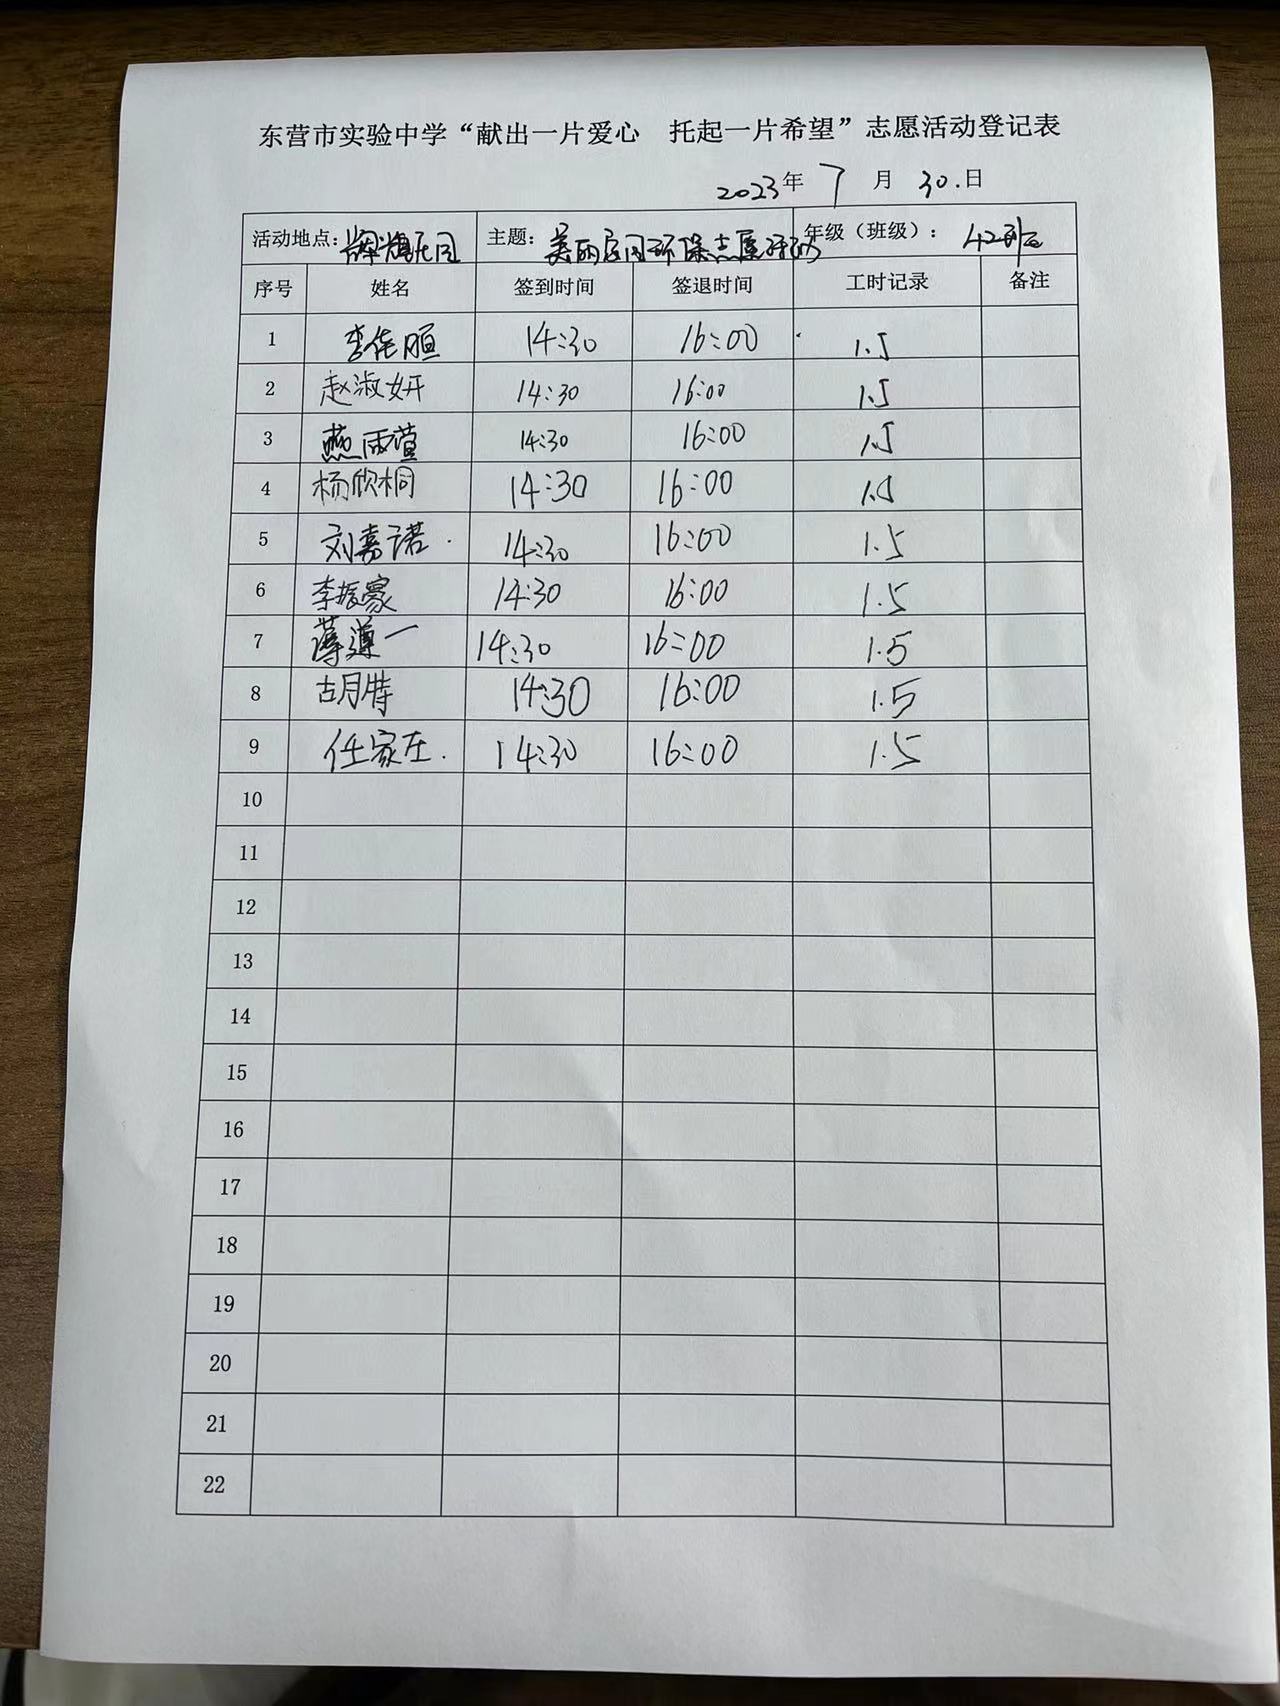 东营市实验中学“献出一片爱心　托起一片希望”志愿活动登记表
2023年 7 月 30.日
活动地点： 主题：美丽家园环保志愿活动 年级（班级）：42班
序号 姓名 签到时间 签退时间 工时记录 备注
1 李佳暄 14:30 16:00 1.5
2 赵淑妍 14:30 16:00 1.5
3 燕雨萱 14:30 16:00 1.5
4 杨欣桐 14:30 16:00 1.5
5 刘嘉诺. 14:30 16:00 1.5
6 李振豪 14:30 16:00 1.5
7 薄遵一 14:30 16:00 1.5
8 胡特 14:30 16:00 1.5
9 任家在. 14:30 16:00 1.5
10
11
12
13
14
15
16
17
18
19
20
21
22